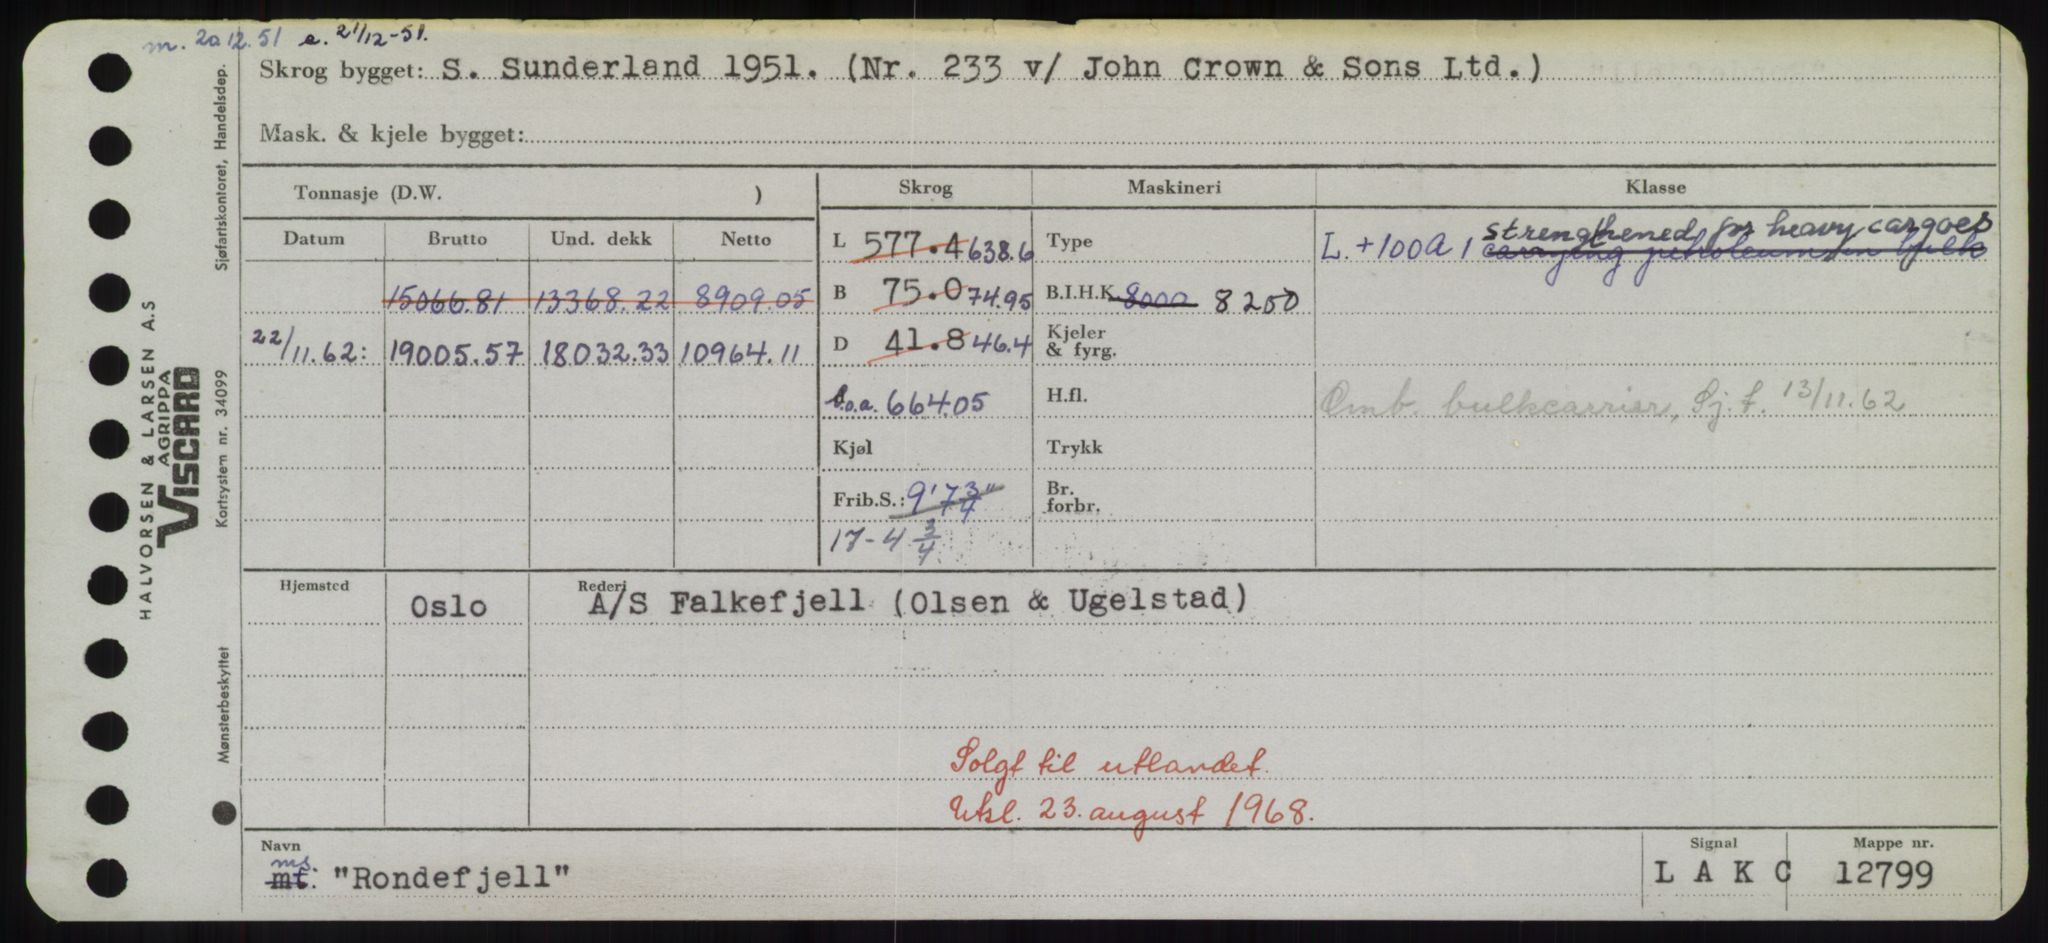 m. 20 12. 51 e. 21/12-51.
Skrog bygget: S. Sunderland 1951. (Nr. 233 v/ John Crown & Sons Ltd.)
Mask. & kjele bygget:
Tonnasje (D.W. )
Skrog
Maskineri
Klasse
Datum
Brutto
Und. dekk
Netto
15066.81 13368.22 8909.05
22/11.62: 19005.57 18032.33 10964.11
L 577.4 638.6
B 75.0 74.95
D 41.8 46.4
l.o.a. 664.05
Kjøl
Frib.S.: 9' 7 3/4"
17-4 3/4
Type
B.I.H.K. 8000 8250
Kjeler
& fyrg.
H.fl.
Trykk
Br.
forbr.
strengthened for heavy cargoes
L. +100A 1 carrying petroleum in bulk
Omb. bulkcarrier, Sj. f. 13/11.62
Hjemsted
Oslo
Rederi
A/S Falkefjell (Olsen & Ugelstad)
Solgt til utlandet.
Utsl. 23. august 1968.
Navn
ms.
mt. "Rondefjell"
Signal
L A K C
Mappe nr.
12799
HALVORSEN & LARSEN A.S
AGRIPPA
VISCARD
Mønsterbeskyttet Kortsystem nr. 34099 Sjøfartskontoret, Handelsdep.